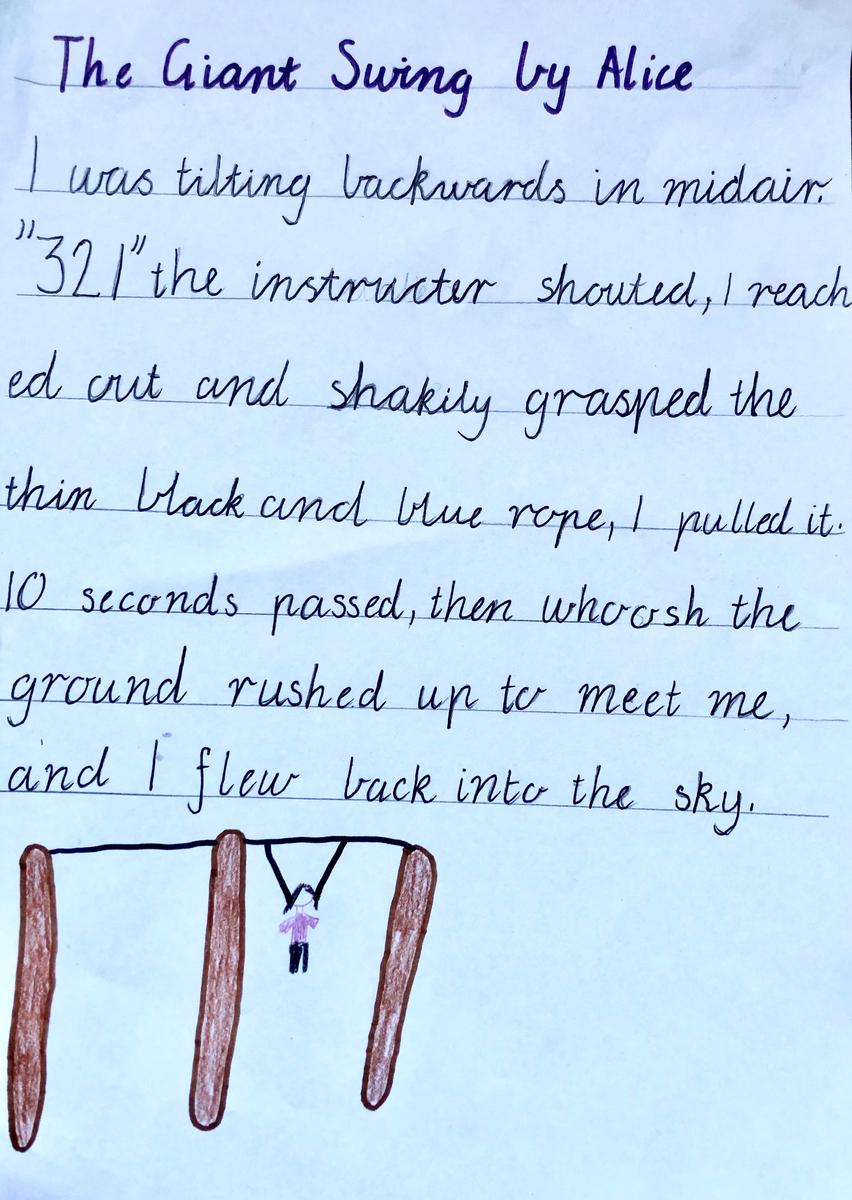 The Giant Swing by Alice
I was tilting backwards in midair.
"321" the instructer shouted, I reach
ed out and shakily grasped the
thin black and blue rope, I pulled it.
10 seconds passed, then whoosh the
ground rushed up to meet me,
and I flew back into the sky.